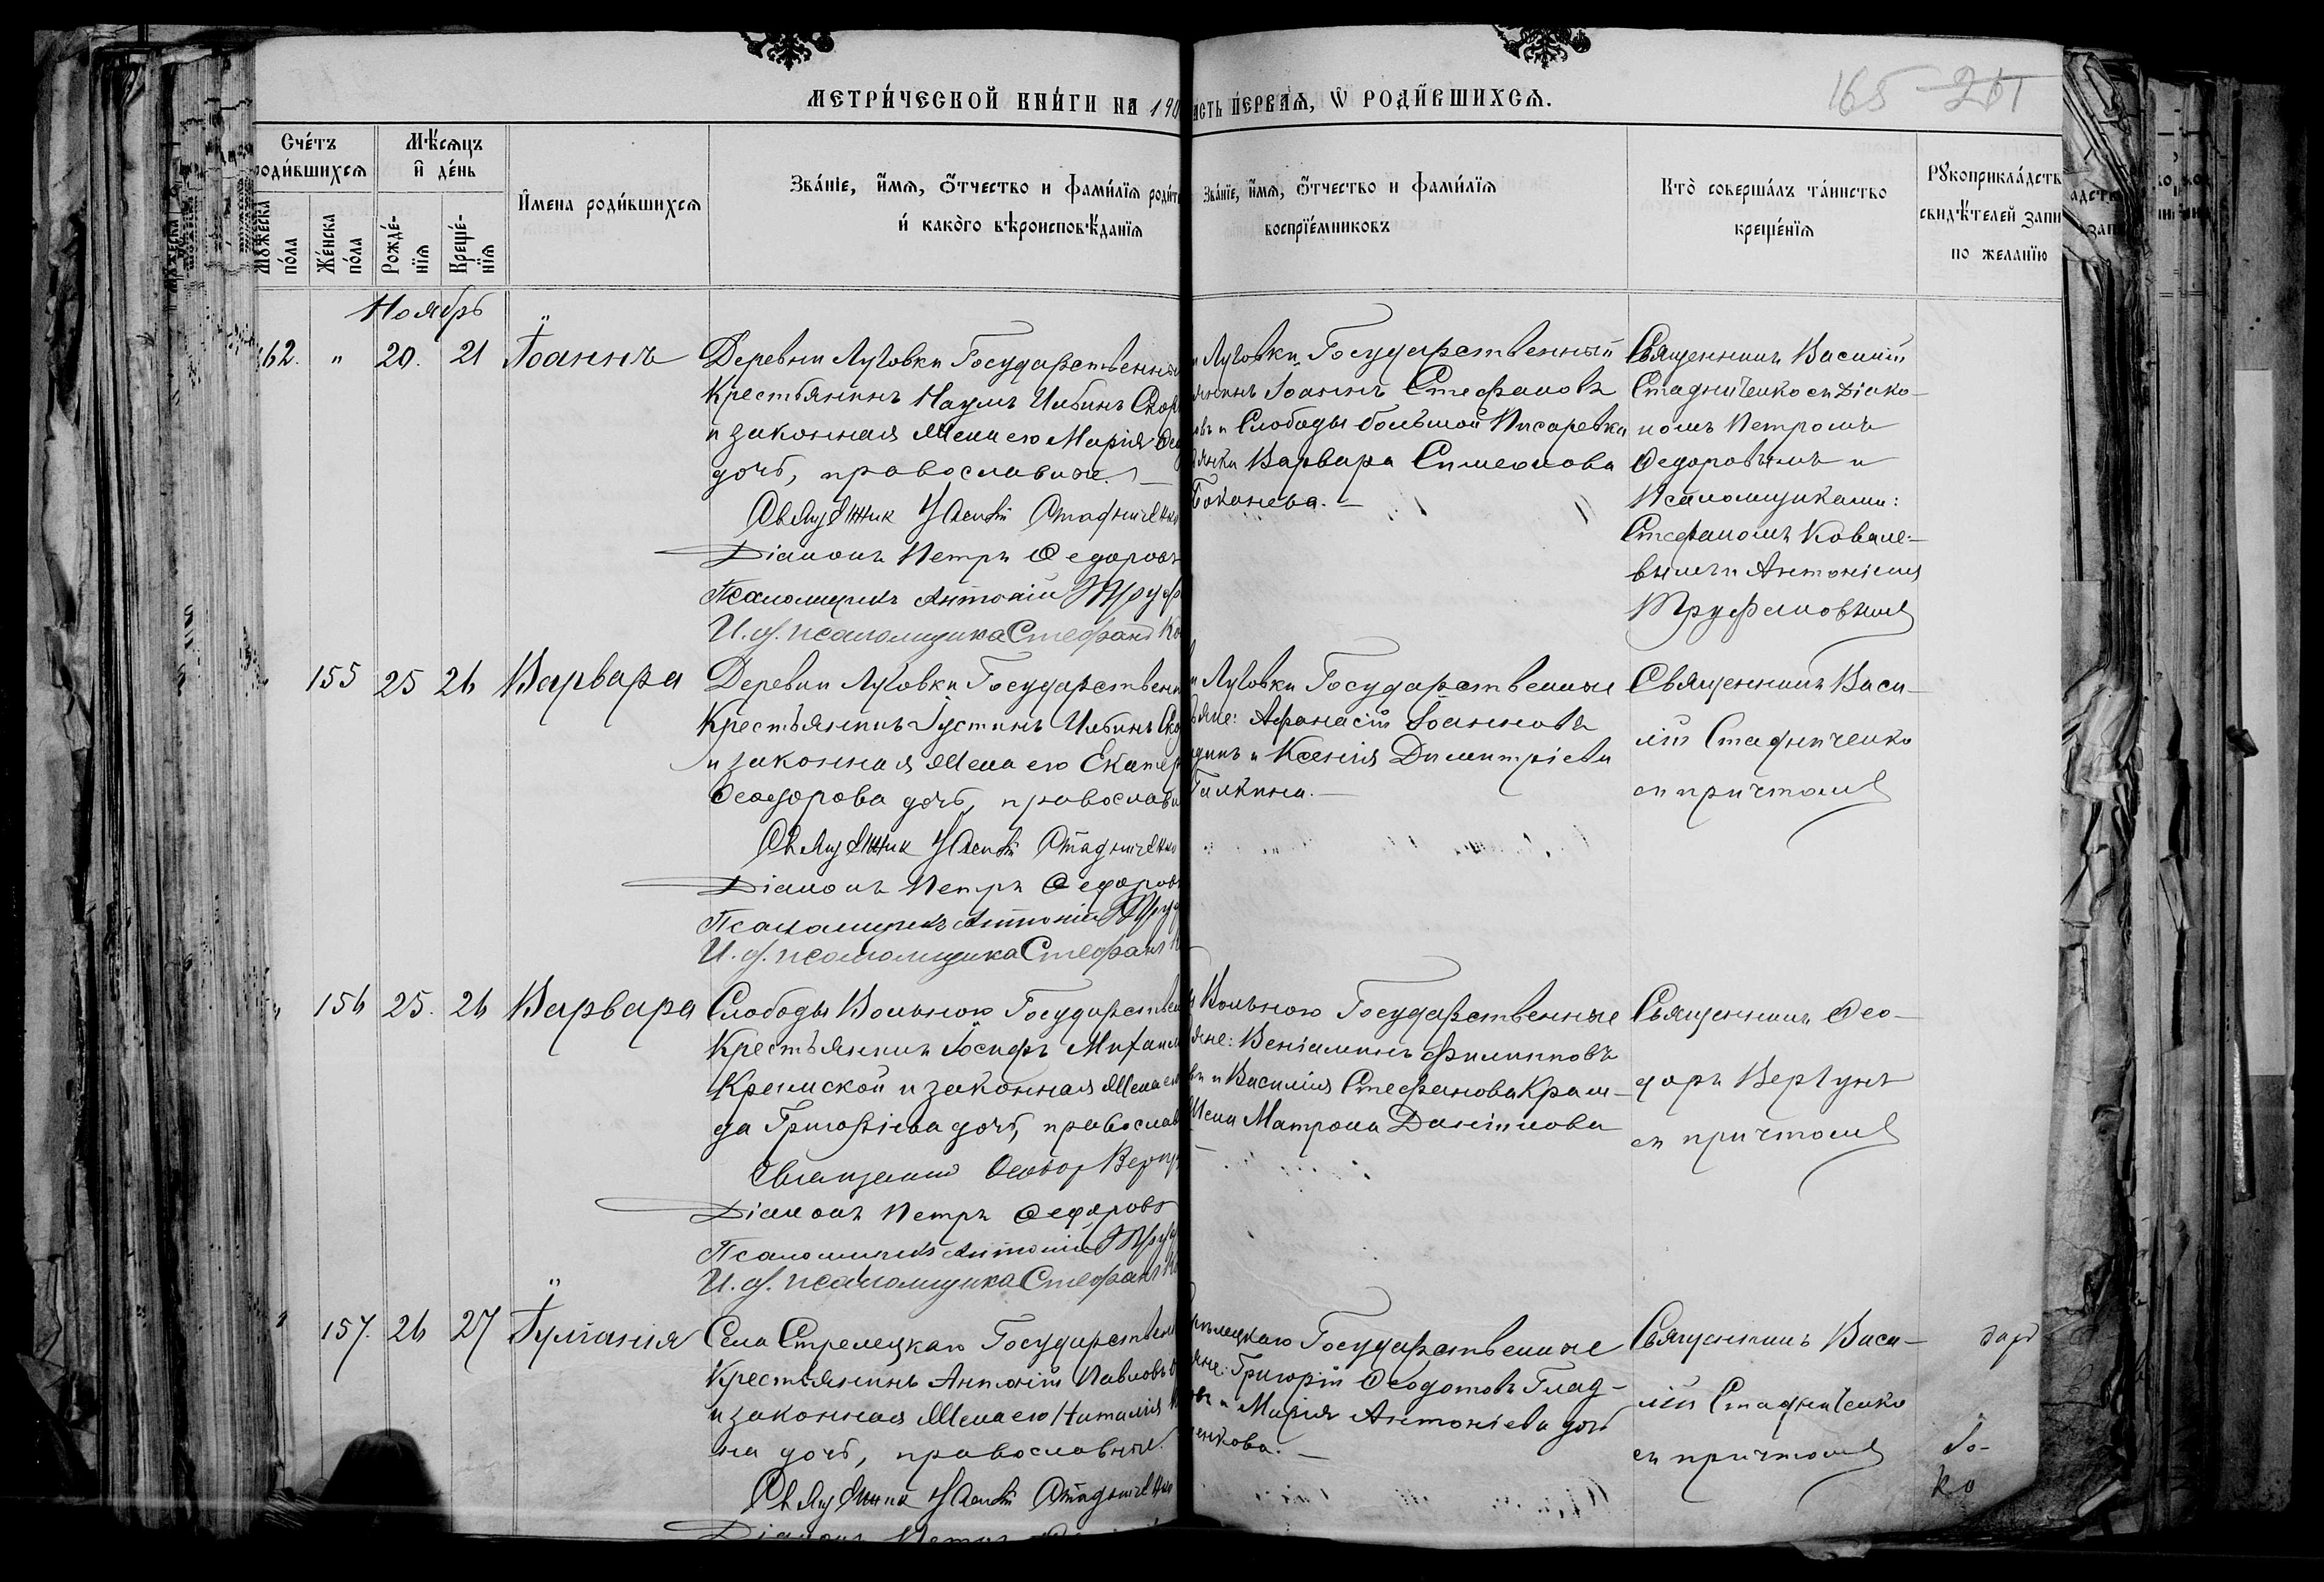 МЕТРИ́ЧЕСКОЙ КНИ́ГИ НА 190
АСТЬ ПЕРВАЯ, Ѡ РОДИ́ВШИХСЯ.
165 211
Сче́тъ
роди́вшихся
Мѣсяцъ
и де́нь
Му́жеска
по́ла
Же́нска
по́ла
Рожде́-
нїя
Креще́-
нїя
И҆мена роди́вшихся
Зва́нїе, и҆́мя, ѻ҆́тчество и фами́лїя роди́т
и како́го вѣроисповѣ́данїя
Зва́нїе, и҆́мя, ѻ҆́тчество и фами́лїя
воспрїе́мниковъ
Кто̀ соверша́лъ та́инство
креще́нїя
Рꙋкоприкла́дств
свидѣ́телей запи
по желанїю
Ноябрь
162. " 20. 21 Іоаннъ
Деревни Луговки Государственны
Крестьянинъ Наумъ Ильинъ Скор
и законная жена его Марія Ѳео
дочь, православные. —
Священник Василій Стадниченко
Діаконъ Петръ Ѳедоровъ
Псаломщикъ Антоній Труф
И. д. псаломщика Стефанъ Ко
и Луговки Государственный
янинъ Іоаннъ Стефановъ
овъ и Слободы большой Писаревки
янка Варвара Симеонова
Боканева. —
Священникъ Василій
Стадниченко съ Діако-
номъ Петромъ
Ѳедоровымъ и
Псаломщиками:
Стефаномъ Ковале-
вымъ и Антоніемъ
Труфановымъ
155 25 26 Варвара
Деревни Луговки Государствен
Крестьянинъ Іустинъ Ильинъ Ско
и законная жена его Екатер
Ѳеодорова дочь, православн
Священник Василій Стадниченко
Діаконъ Петръ Ѳедоровъ
Псаломщикъ Антоній Труф
И. д. псаломщика Стефанъ К
и Луговки Государственные
ьяне: Аѳанасій Іоанновъ
динъ и Ксенія Димитріева
Галкина. —
Священникъ Васи-
лій Стадниченко
съ причтомъ
" 156 25. 26 Варвара
Слободы Вольного Государствен
Крестьянинъ Іосифъ Михаил
Крамской и законная жена его
да Григоріева дочь, православ
Священникъ Ѳеодоръ Вергун
Діаконъ Петръ Ѳедоровъ
Псаломщикъ Антоній Труф
И. д. псаломщика Стефанъ Ко
Вольного Государственные
яне: Веніаминъ Филипповъ
въ и Василія Стефанова Крам-
жена Матрона Даніилова
Священникъ Ѳео-
доръ Вергунъ
съ причтомъ
" 157. 26 27 Іуліанія
Села Стрелецкаго Государствен
Крестьянинъ Антоній Павловъ
и законная жена его Наталія
на дочь, православные.
Священник Василій Стадниченко
Діаконъ Петръ
рѣлецкаго Государственные
яне: Григорій Ѳеодотовъ Глад-
овъ и Марія Антоніева дочь
енкова. —
Священникъ Васи-
лій Стадниченко
съ причтомъ